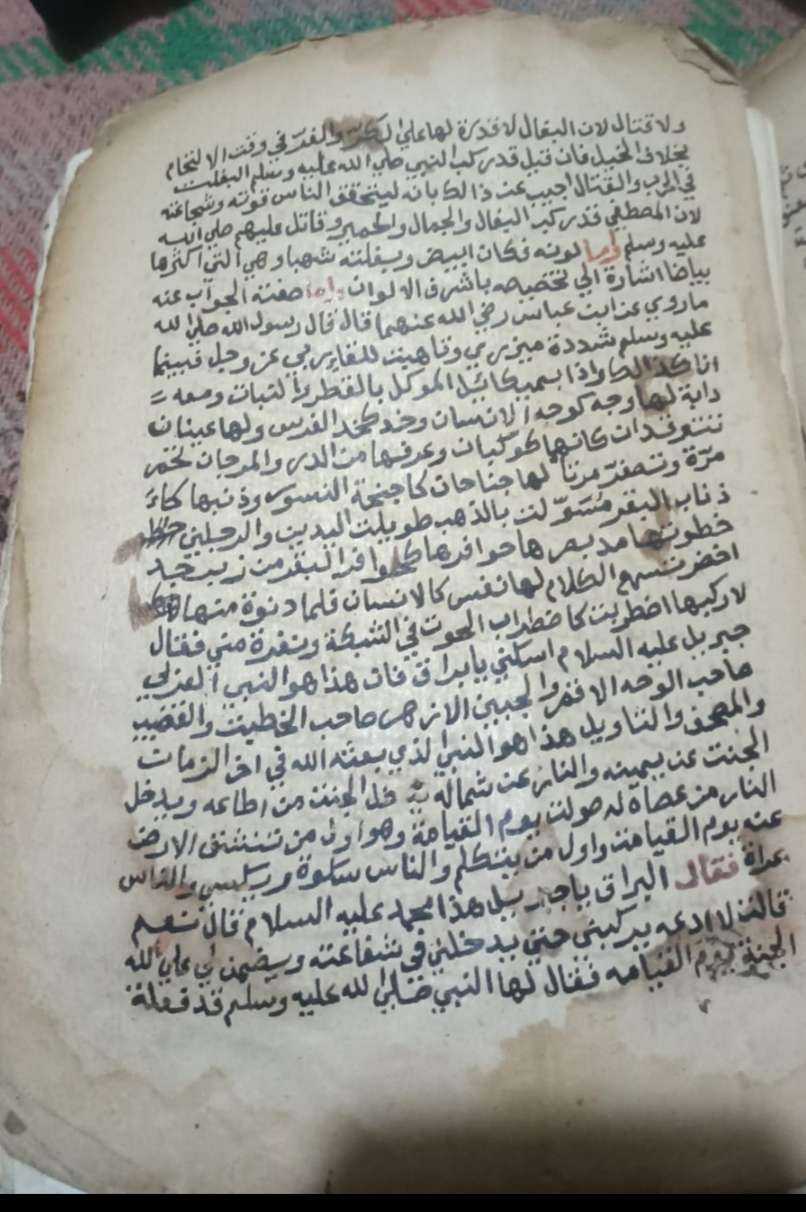 ولا قتال لان البغال لا قدرة لها علي الكر والفر في وقت الالتحام
بخلاف الخيل فان قيل قد ركب النبي صلي الله عليه وسلم البغلت
في الحرب والقتال اجيب عن ذالك بانه ليتحقق الناس قوته وشجاعته
لان المصطفي قد ركب البغال والجمال والحمير وقاتل عليهم صلي الله
عليه وسلم واما لونه فكان ابيض وبغلته شهبا وهي التي اكثرها
بياضا اشارة الي تخصيصه باشرف الالوان واما صفته الجواب عنه
ما روي عن ابن عباس رضي الله عنهما قال قال رسول الله صلي الله
عليه وسلم شددة ميزري وتاهبت للقاء ربي عز وجل فبينما
انا كذالك واذا بميكائيل الموكل بالقطر والنبات ومعه
دابة لها وجه كوجه الانسان وخد كخد الفرس ولها عينان
تتوقدان كانهما كوكبان وعرفها من الدر والمرجان تخمر
مرة وتصفر مرتا لها جناحان كاجنحة النسور وذنبها كا
ذناب البقر مسولت بالذهب طويلت اليدين والرجلين
خطوتها مد بصرها حوافرها كحوافر البقر من زبرجد
اخضر تسمع الكلام لها نفس كالانسان فلما دنوة منها
لاركبها اضطربت كاضطراب الحوت في الشبكة ونفرة مني فقال
جبريل عليه السلام اسكني يا براق فان هذا هو النبي العربي
صاحب الوجه الاقمر والجبين الازهر صاحب الخطيت والقضيب
والمصحف والتاويل هذا هو النبي الذي بعثه الله في اخر الزمان
الجنت عن يمينه والنار عن شماله يدخل الجنت من اطاعه ويدخل
النار من عصاه له صولت يوم القيامة وهو اول من تنشق الارض
عنه يوم القيامت واول من يتكلم والناس سكوة ويكسي والناس
عراة فقال البراق يا جبريل هذا محمد عليه السلام قال نعم
قالت لا ادعه يركبني حتي يدخلني في شفاعته ويضمن لي علي الله
الجنة يوم القيامه فقال لها النبي صلي الله عليه وسلم قد فعلة